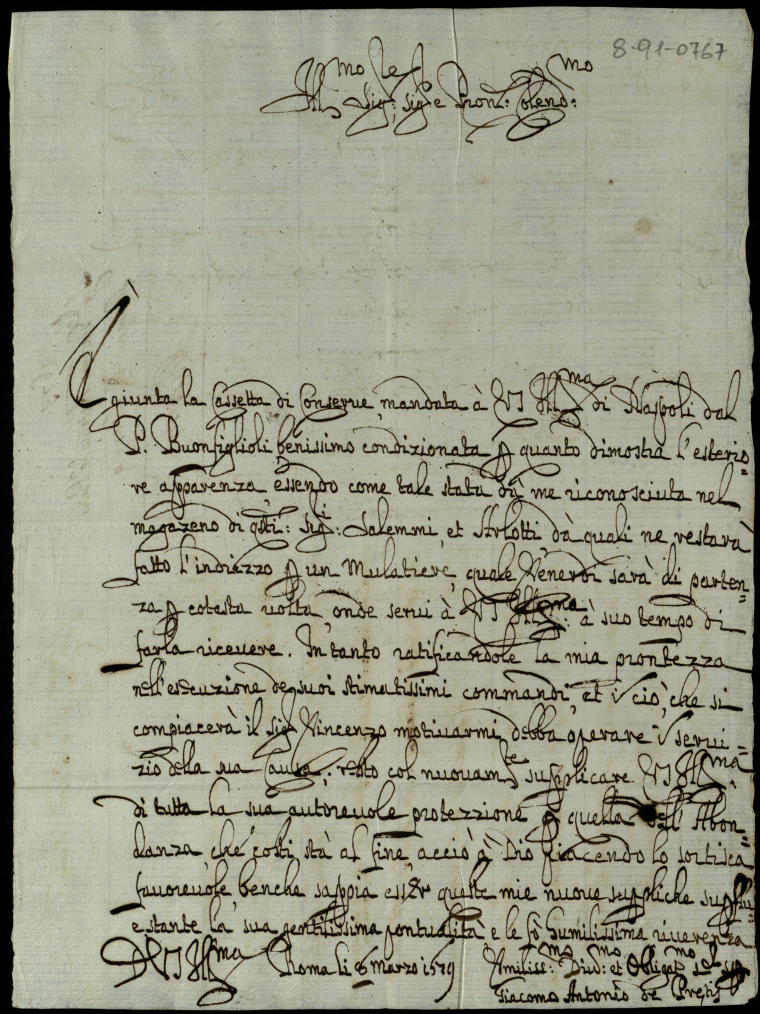 8-91-0767
Ill.mo Sig.re Sig.re e Pron: Colend.mo
È giunta la Cassetta di Conserve mandata à VS Ill.ma di Napoli dal
P. Buonfiglioli benissimo condizionata p quanto dimostra l'esterio=
re apparenza, essendo come tale stata dà me riconosciuta nel
magazeno di qsti: Sig.i: Salemmi, et Arlotti dà quali ne restarà
fatto l'indrizzo p un Mulatiere, quale Venerdi sarà di parten=
za p cotesta volta, onde servi à VS Ill.ma: à suo tempo di
farla ricevere. In tanto ratificandole la mia prontezza
nell'essecuzione de suoi stimatissimi commandi, et i ciò, che si
compiacerà il Sig. Vincenzo motivarmi debba operare i servi=
zio della sua Causa; resto col nuovam.te supplicare VS Ill.ma
di tutta la sua autorevole protezzione p quella dell'Abon=
danza che costi stà al fine, acciò à Dio piacendo lo sortisca
favorevole benche sappia esser queste mie nuove suppliche
e stante la sua gentilissima pontualità e le fo humilissima riverenza
D VS Ill.ma Roma li 8 Marzo 1679 Divd.mo: et Obligat.mo
Giacomo Antonio de